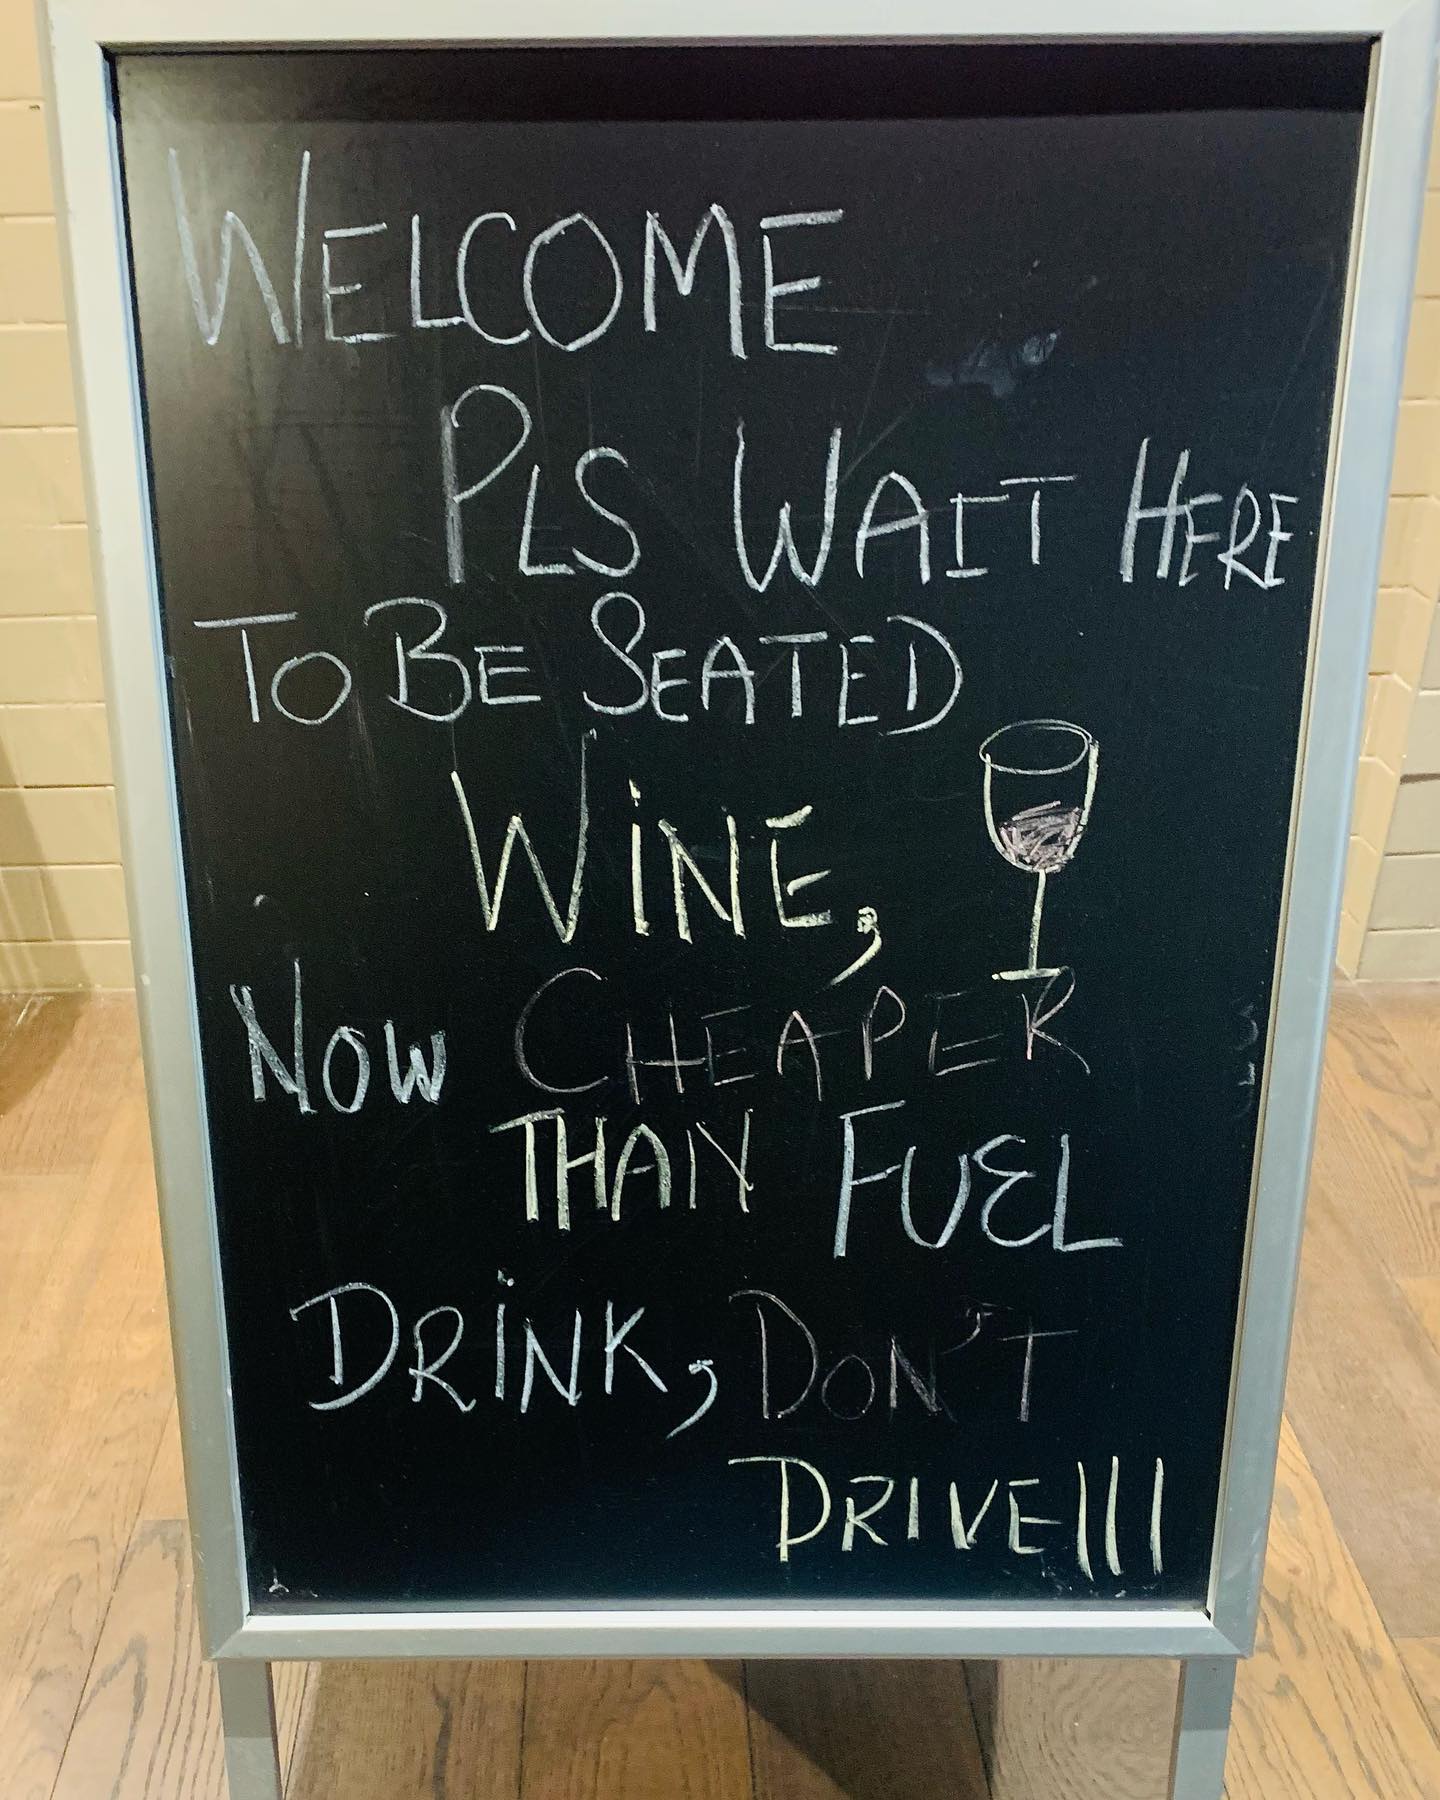 WELCOME
PLS WAIT HERE
TO BE SEATED
WiNE,
NOW CHEAPER
THAN FUEL
DRiNK, DON'T
DRIVE!!!